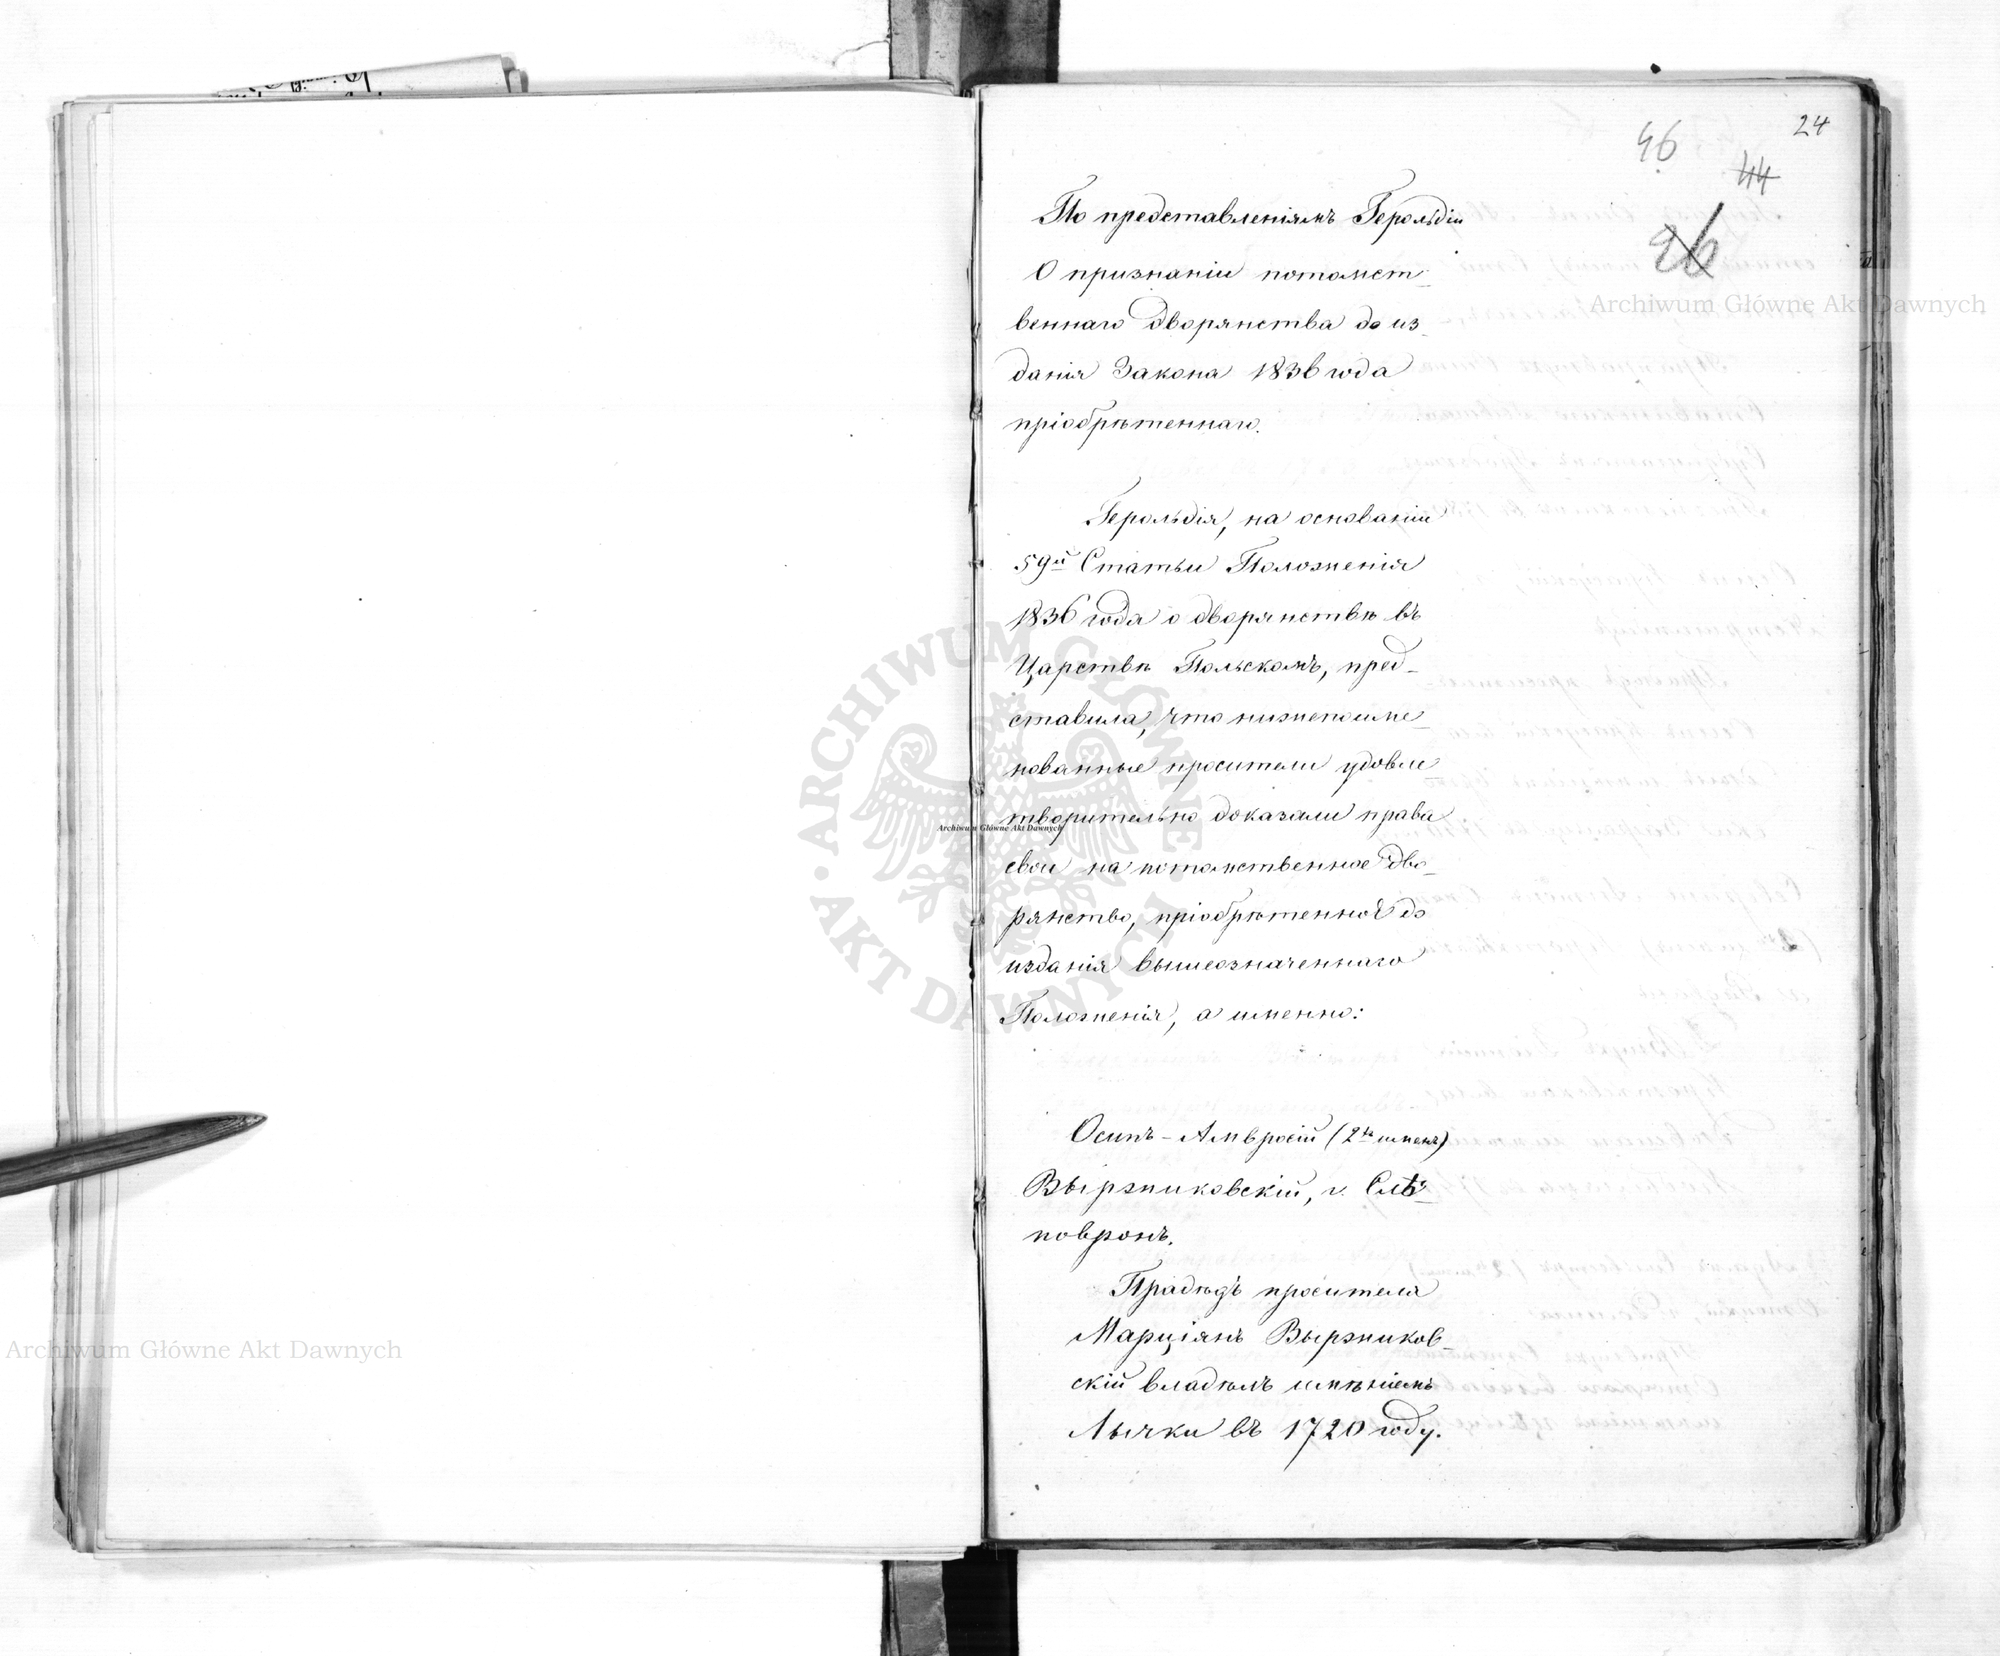 24
46
44
26
По представленіямъ Герольдіи
О признаніи потомст-
веннаго дворянства до из-
данія Закона 1836 года
пріобрѣтеннаго.
Герольдія, на основаніи
59й Статьи Положенія
1836 года о дворянствѣ въ
Царствѣ Польскомъ, пред-
ставила, что нижепоиме-
нованные просители удовле-
творительно доказали права
свои на потомственное дво-
рянство, пріобрѣтенное до
изданія вышеозначеннаго
Положенія, а именно:
Осипъ-Амвросій (2хъ именъ)
Выржиковскій, г. Слѣ-
повронъ.
Прадѣдъ просителя
Марціянъ Выржиков-
скій владѣлъ имѣніемъ
Лычки въ 1720 году.
Archiwum Główne Akt Dawnych
Archiwum Główne Akt Dawnych
Archiwum Główne Akt Dawnych
ARCHIWUM GŁÓWNE AKT DAWNYCH